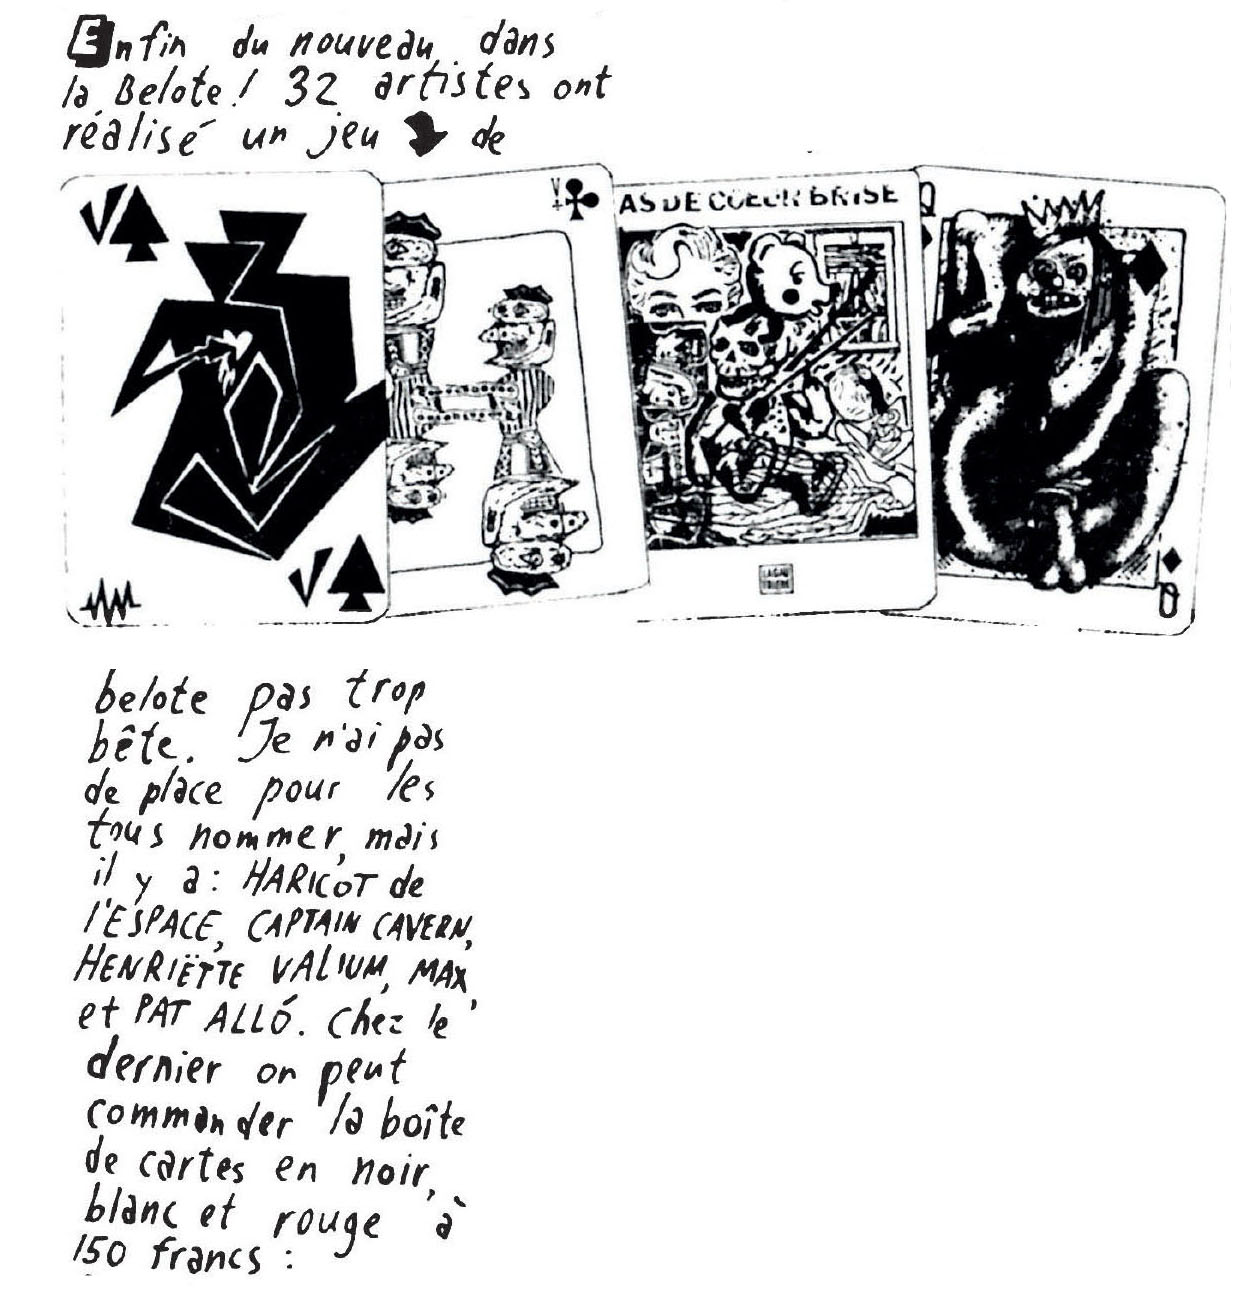 Enfin du nouveau dans
la Belote! 32 artistes ont
réalisé un jeu de
V
AS DE COEUR BRISÉ
Q
V
Q
belote pas trop
bête. Je n'ai pas
de place pour les
tous nommer, mais
il y a: HARICOT de
l'ESPACE, CAPTAIN CAVERN,
HENRIËTTE VALIUM, MAX,
et PAT ALLÓ. Chez le
dernier on peut
commander la boîte
de cartes en noir,
blanc et rouge à
150 francs :